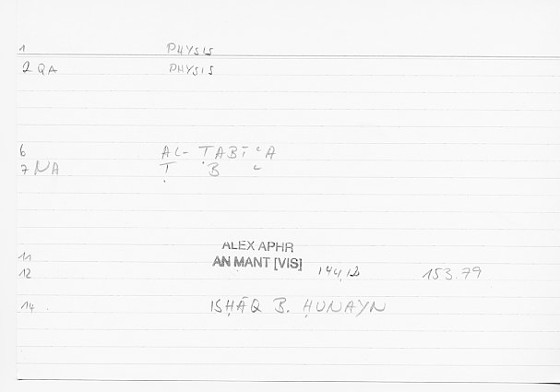 1 PHYSIS
2 QA PHYSIS
6 AL- ṬABĪʿA
7 NA Ṭ B ʿ
11 ALEX APHR
12 AN MANT [VIS] 144,12 153.79
14. ISḤĀQ B. ḤUNAYN